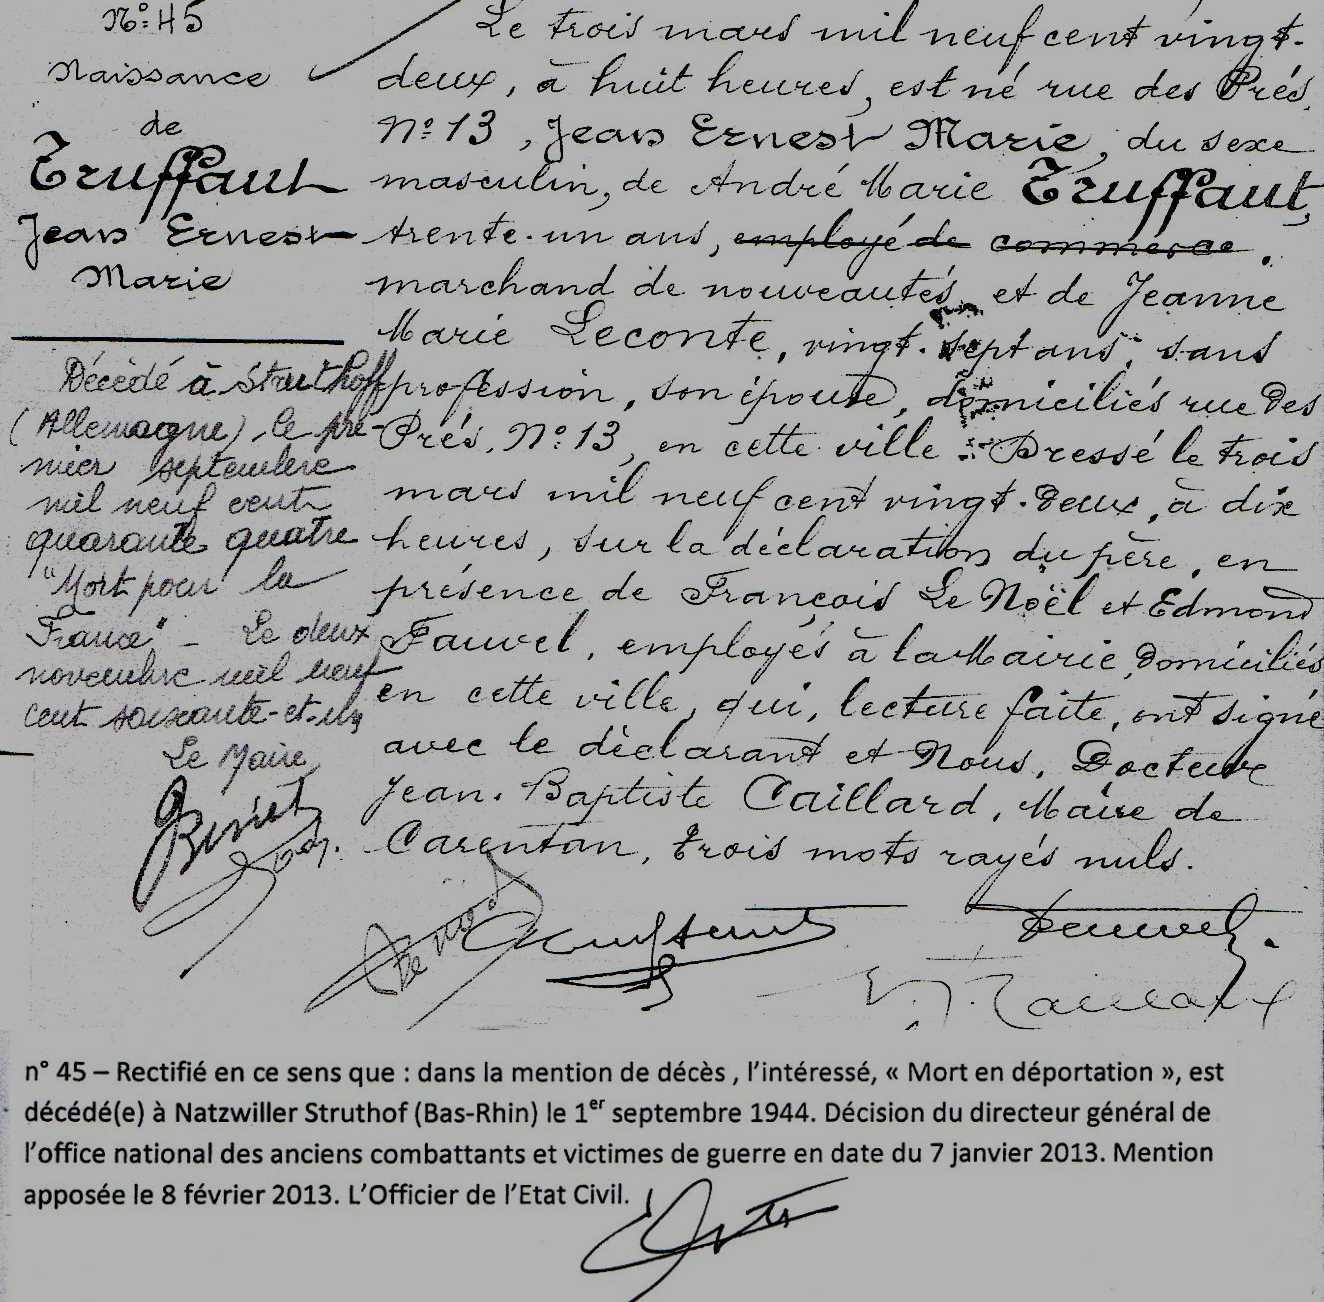 N° 45
Naissance
de
Truffaut
Jean Ernest
Marie
Décédé à Struthoff
(Allemagne), le pre-
mier septembre
mil neuf cent
quarante quatre
"Mort pour la
France" - Le deux
novembre mil neuf
cent soixante-et-un
Le Maire
Le trois mars mil neuf cent vingt-
deux, à huit heures, est né rue des Prés,
N° 13, Jean Ernest Marie, du sexe
masculin, de André Marie Truffaut,
trente-un ans, employé de commerce.
marchand de nouveautés, et de Jeanne
Marie Leconte, vingt-sept ans, sans
profession, son épouse, domiciliés rue des
Prés, N° 13, en cette ville. Dressé le trois
mars mil neuf cent vingt-deux, à dix
heures, sur la déclaration du père, en
présence de François Le Noël et Edmond
Fauvel, employés à la Mairie, domiciliés
en cette ville, qui, lecture faite, ont signé
avec le déclarant et Nous, Docteur
Jean-Baptiste Caillard, Maire de
Carentan, trois mots rayés nuls.
Le Noël
n° 45 – Rectifié en ce sens que : dans la mention de décès , l'intéressé, « Mort en déportation », est
décédé(e) à Natzwiller Struthof (Bas-Rhin) le 1er septembre 1944. Décision du directeur général de
l'office national des anciens combattants et victimes de guerre en date du 7 janvier 2013. Mention
apposée le 8 février 2013. L'Officier de l'Etat Civil.